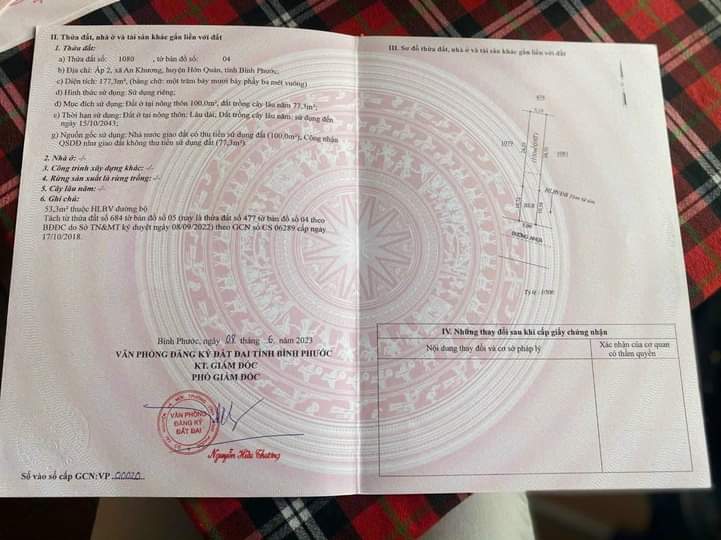 II. Thửa đất, nhà ở và tài sản khác gắn liền với đất
1. Thửa đất:
a) Thửa đất số: 1080 , tờ bản đồ số: 04
b) Địa chỉ: Ấp 2, xã An Khương, huyện Hớn Quản, tỉnh Bình Phước,
c) Diện tích: 177,3m², (bằng chữ: một trăm bảy mươi bảy phẩy ba mét vuông)
d) Hình thức sử dụng: Sử dụng riêng;
đ) Mục đích sử dụng: Đất ở tại nông thôn 100.0m², đất trồng cây lâu năm 77,3m²;
e) Thời hạn sử dụng: Đất ở tại nông thôn: Lâu dài, Đất trồng cây lâu năm: sử dụng đến
ngày 15/10/2043;
g) Nguồn gốc sử dụng: Nhà nước giao đất có thu tiền sử dụng đất (100,0m²), Công nhận
QSDĐ như giao đất không thu tiền sử dụng đất (77,3m²).
2. Nhà ở: -/-
3. Công trình xây dựng khác: -/-
4. Rừng sản xuất là rừng trồng: -/-
5. Cây lâu năm: -/-
6. Ghi chú:
53,3m² thuộc HLBV đường bộ
Tách từ thửa đất số 684 tờ bản đồ số 05 (nay là thửa đất số 477 tờ bản đồ số 04 theo
BĐĐC do Sở TN&MT ký duyệt ngày 08/09/2022) theo GCN số CS 06289 cấp ngày
17/10/2018.
Bình Phước, ngày 08 tháng 6 năm 2023
VĂN PHÒNG ĐĂNG KÝ ĐẤT ĐAI TỈNH BÌNH PHƯỚC
KT. GIÁM ĐỐC
PHÓ GIÁM ĐỐC
VĂN PHÒNG
ĐĂNG KÝ
ĐẤT ĐAI
Nguyễn Hữu Thương
Số vào sổ cấp GCN:VP 00020
III. Sơ đồ thửa đất, nhà ở và tài sản khác gắn liền với đất
1079
1081
ĐƯỜNG NHỰA
IV. Những thay đổi sau khi cấp giấy chứng nhận
Nội dung thay đổi và cơ sở pháp lý
Xác nhận của cơ quan
có thẩm quyền